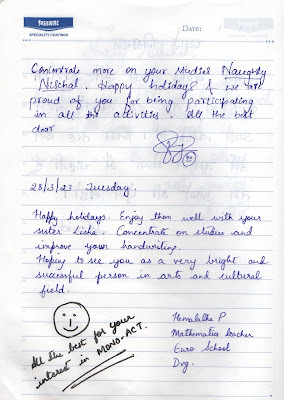 SPECIALITY COATINGS
DATE:
Concentrate more on your studies Naughty
Nischal. Happy holidays & we are
proud of you for being participating
in all the activities. All the best
dear
28/3/23 Tuesday.
Happy holidays. Enjoy them well with your
sister Lisha. Concentrate on studies and
improve your handwriting.
Hoping to see you as a very bright and
successful person in arts and cultural
field.
All the best for your
interest in MONO-ACT.
Hemalatha P
Mathematics teacher
Euro School
Dvg.